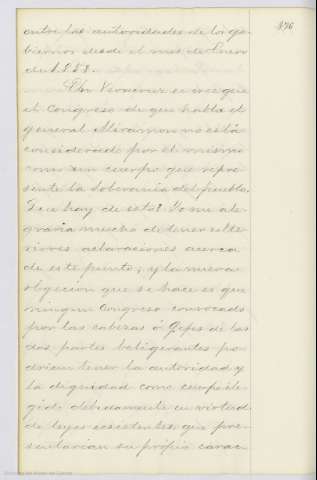 entre las autoridades de los go-
biernos desde el mes de Enero
de 1858.
En Veracruz se cree que
el Congreso de que habla el
general Miramon no está
considerado por el mismo
como un cuerpo que repre-
sente la soberania del pueblo.
Que hay de esto? Yo me ale-
graria mucho de tener ulte-
riores aclaraciones acerca
de este punto; y la nueva
objecion que se hace es que
ningun Congreso convocado
por las cabezas ó Gefes de las
dos partes beligerantes po-
drian tener la autoridad y
la dignidad como cuerpo ele-
gido debidamente en virtud
de leyes ecsistentes que pre-
sentarian su propio carac-